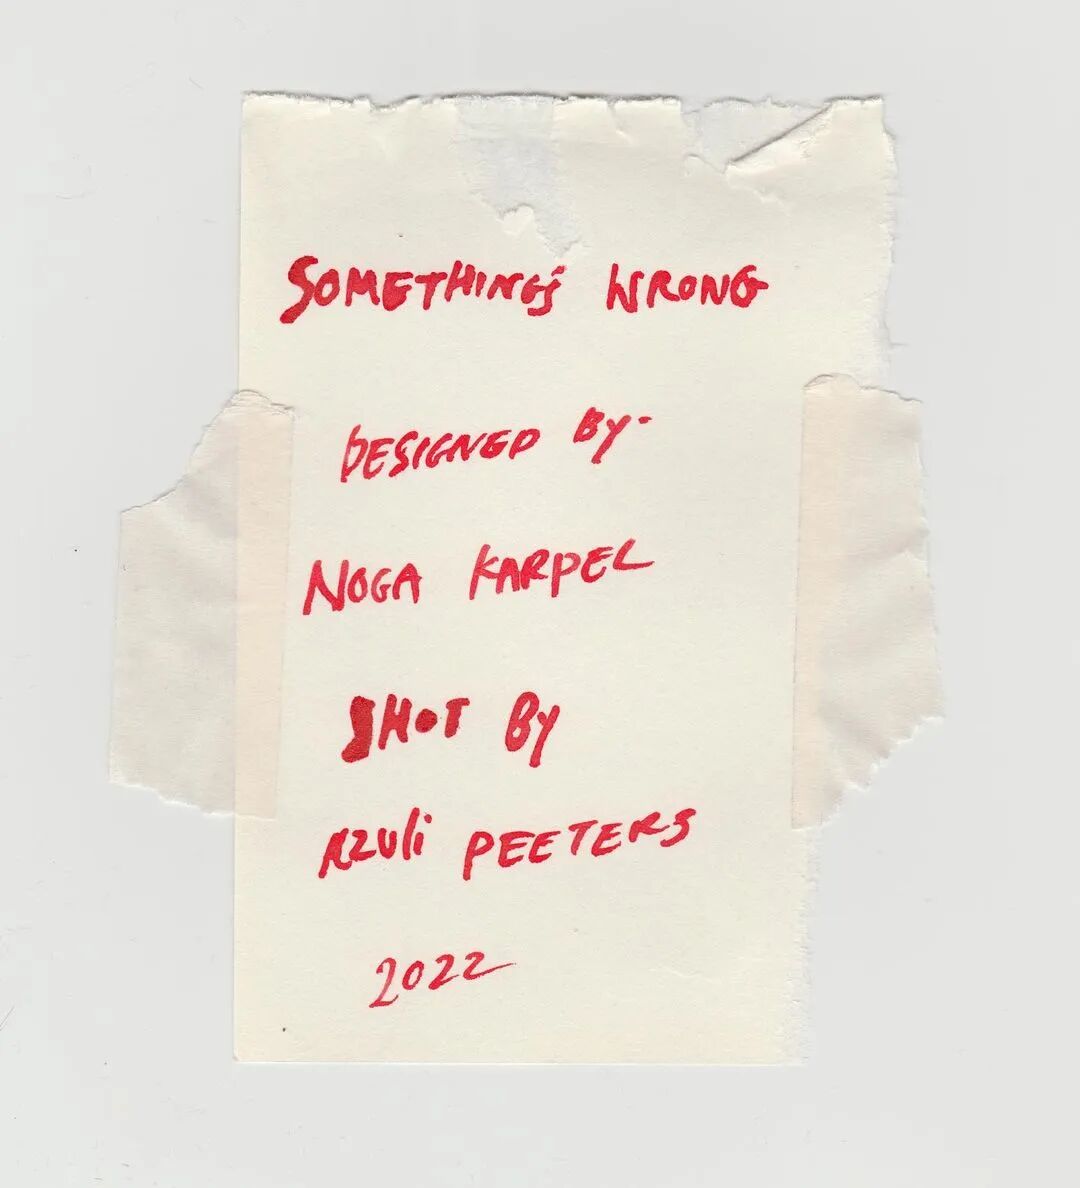 SOMETHING'S WRONG
DESIGNED BY-
NOGA KARPEL
SHOT BY
AZULi PEETERS
2022